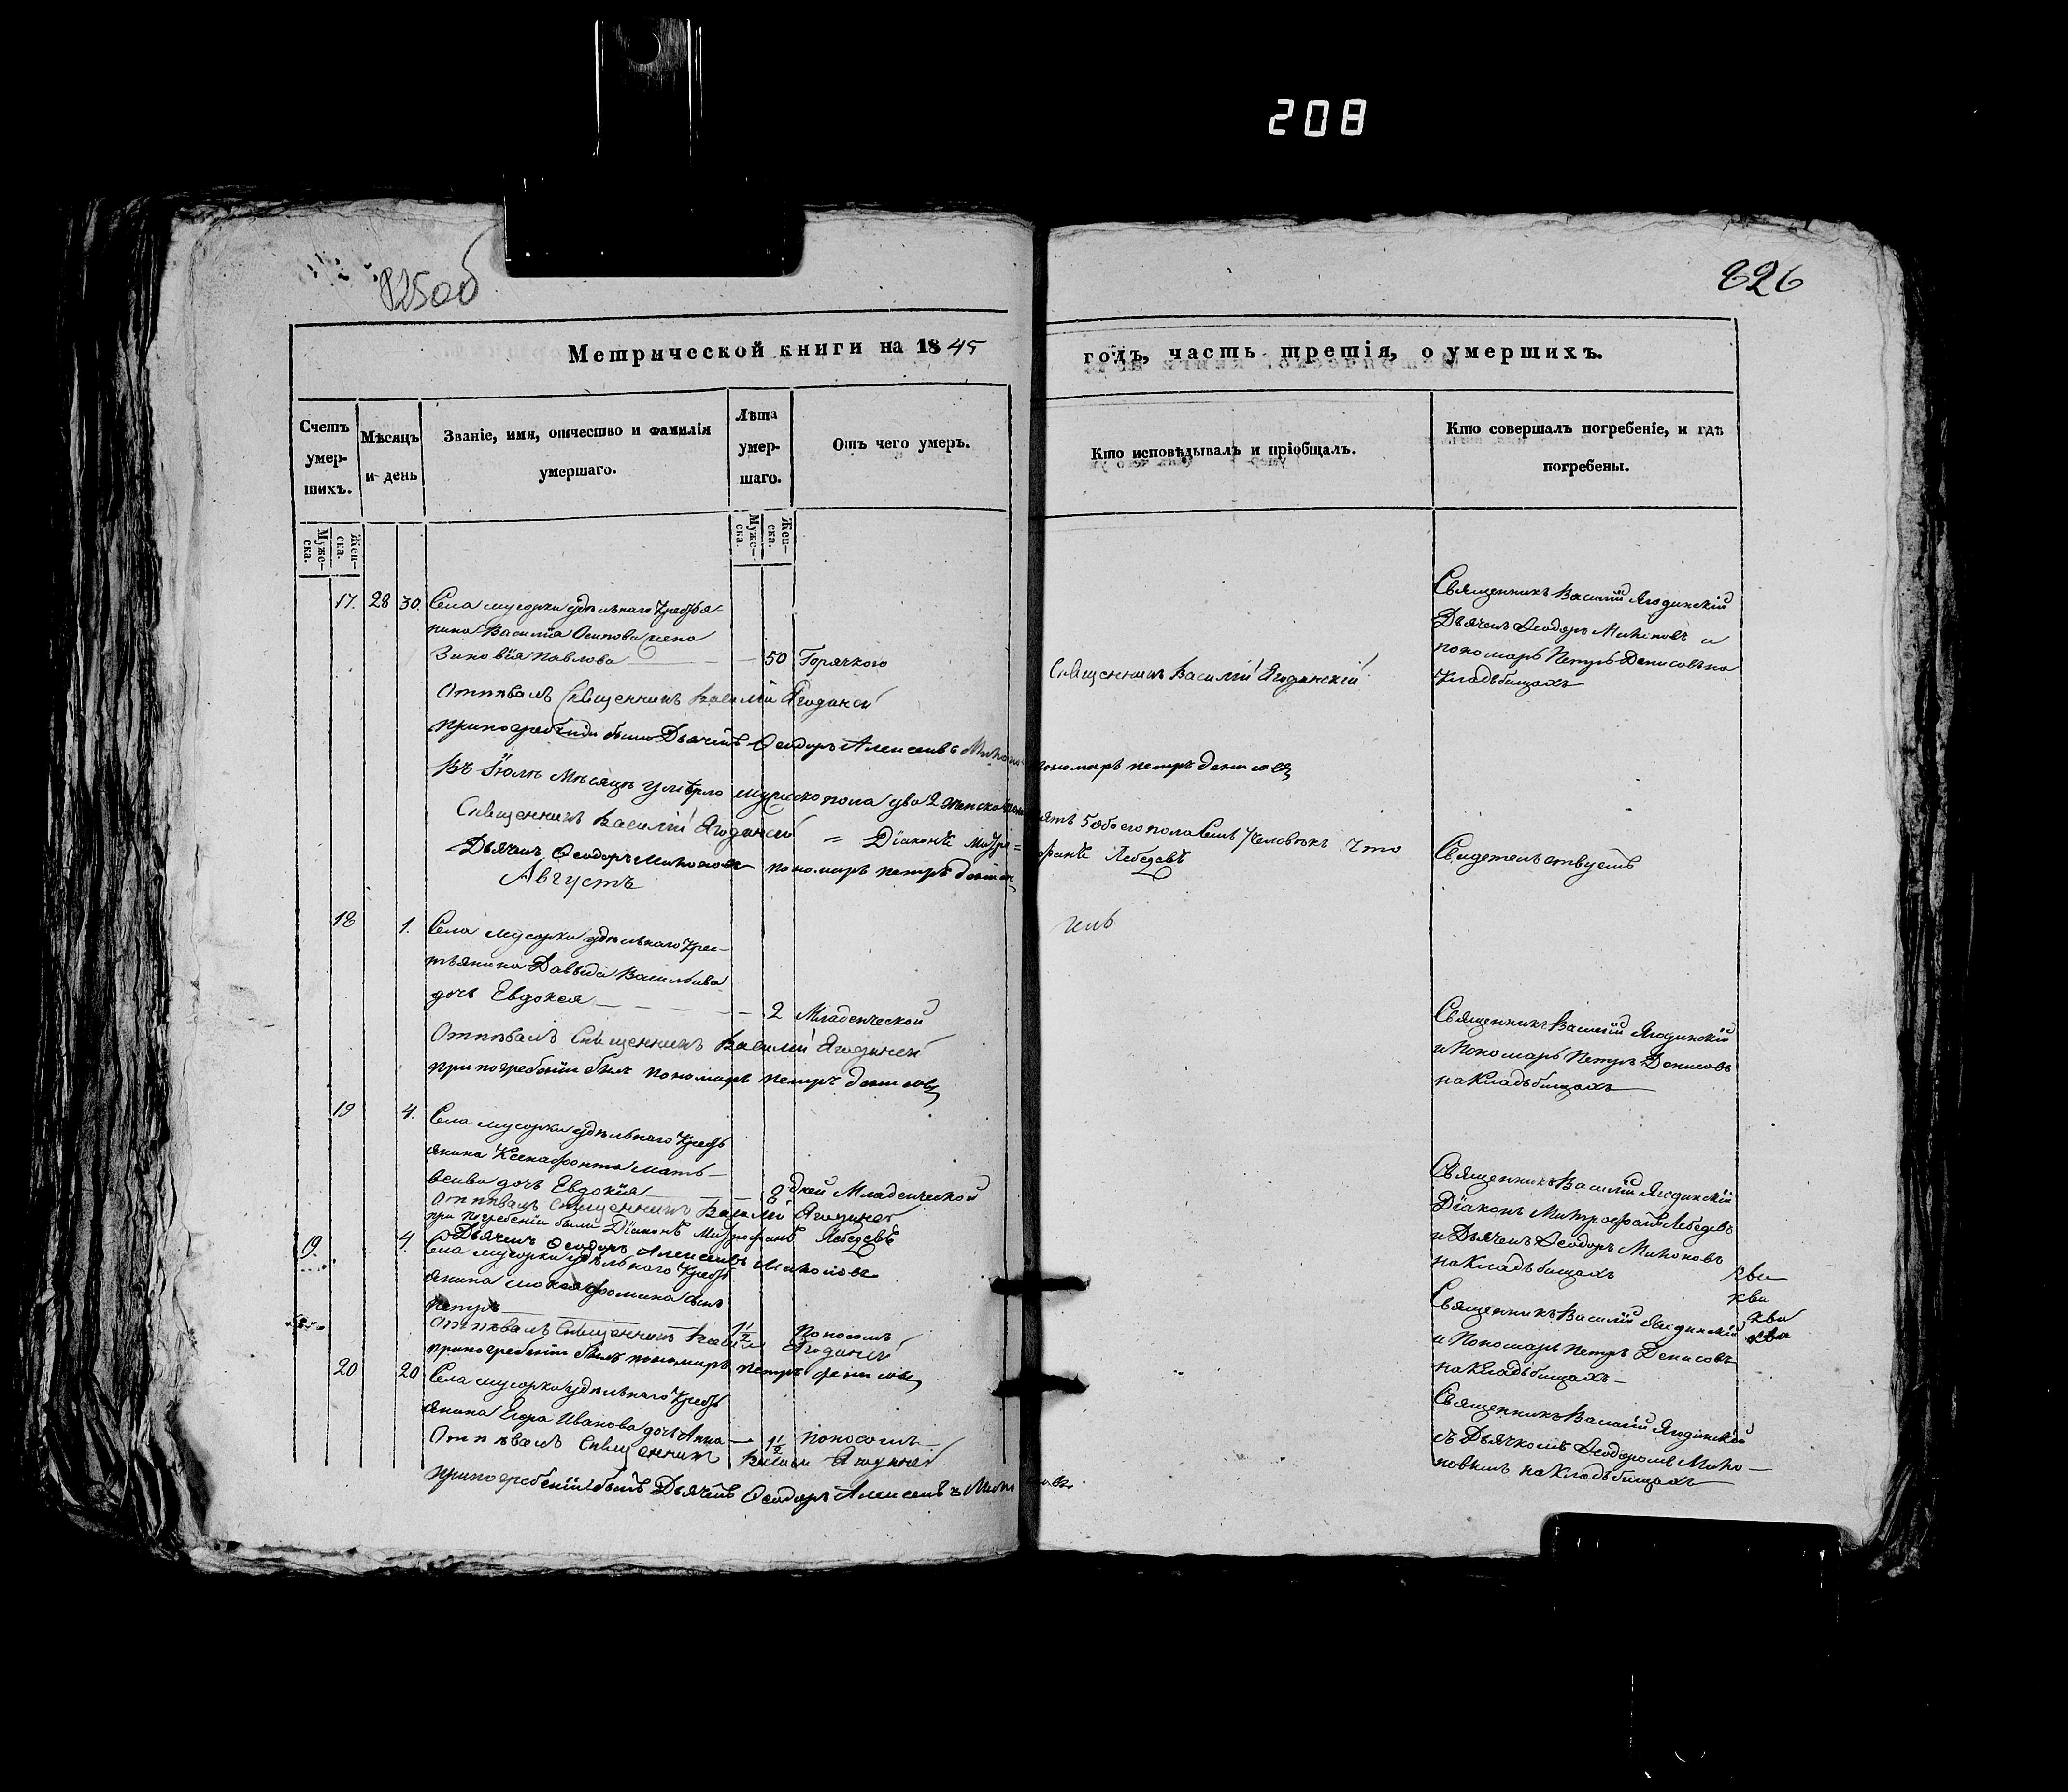 208
825об
826
Метрической книги на 1845
годъ, часть третія, о умершихъ.
Счетъ умер-шихъ.
Мѣсяцъ и день
Званіе, имя, отчество и фамилія умершаго.
Лѣта умер-шаго.
Отъ чего умеръ.
Кто исповѣдывалъ и пріобщалъ.
Кто совершалъ погребеніе, и гдѣ погребены.
Муже-ска.
Жен-ска.
Муже-ска.
Жен-ска.
17. 28 30. Села Мусорки удѣльнаго Крестья-
нина Василія Осипова жена
Зиновія Павлова 50 Горячкого
Священникъ Василій Ягодинскій
Священникъ Василій Ягодинскій
Дьячекъ Ѳеодоръ Михоновъ и
пономарь Петръ Денисовъ на
Кладьбищахъ
Отпѣвалъ Священникъ Василій Ягодинскій
при погребеніи были Дьячекъ Ѳеодоръ Алексеевъ
пономарь петръ денисовъ
Въ Іюлѣ Мѣсяцѣ умерло мужеско пола два 2 женско
пять 5 обоего пола Семь 7 Человѣкъ Что
Свидетельствуемъ
Священникъ Василій Ягодинскій = Діаконъ Митро=
фанъ Лебедевъ
Дьячекъ Ѳеодоръ Михоновъ пономарь петръ
Августъ
18 1. Села Мусорки удѣльнаго Крес-
тьянина Давыда Васильева
дочь Евдокея 2 Младенческой
Священникъ Василій Ягодинскій
и Пономарь Петръ Денисовъ
на Кладьбищахъ
Отпѣвалъ Священникъ Василій Ягодинскій
при погребеніи былъ пономарь петръ денисовъ
19 4. Села Мусорки удѣльнаго Кресть
янина Ксенафонта Мать-
веива дочь Евдокія 8 дней Младенческой
Священникъ Василій Ягодинскій
Діаконъ Митрофанъ Лебедевъ
и Дьячекъ Ѳеодоръ Михоновъ
на Кладьбищахъ
Отпѣвалъ Священникъ Василій Ягодинскій
при погребеніи были Діаконъ Митрофанъ Лебедевъ
Дьячекъ Ѳеодоръ Алексеевъ Михоновъ
19. 4. Села Мусорки удѣльнаго Кресть
янина сынъ
петръ 1 1/2 Поносомъ
Священникъ Василій Ягодинскій
и Пономарь Петръ Денисовъ
на Кладьбищахъ
Отпѣвалъ Священникъ Василій Ягодинскій
при погребеніи былъ пономарь петръ денисовъ
20 20 Села Мусорки удѣльнаго Кресть
янина Егора Иванова дочь Анна 1 1/2 поносомъ
Священникъ Василій Ягодинскій
съ Дьячкомъ Ѳеодоромъ Михо-
новымъ на Кладьбищахъ
Отпѣвалъ Священникъ Василій Ягодинскій
при погребеніи былъ Дьячекъ Ѳеодоръ Алексеевъ